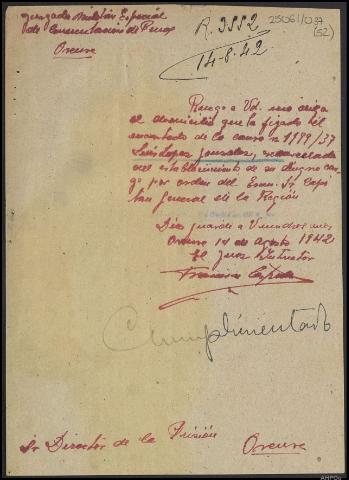 Juzgado Militar Especial
de Conmutación de Penas
Orense
R. 3552
14-8-42
25061/037
(52)
Ruego a Vd. me diga
el domicilio que ha fijado el
encartado de la causa n 1199/37
Luis Lopez Gonzalez, excarcelado
del establecimiento de su digno car-
go por orden del Exmo. Sr. Capi
tan General de la Región
Dios guarde a V. muchos años
Orense 14 de Agosto 1942
El Juez Instructor
Francisco
Cumplimentado
Sr Director de la Prisión
Orense
AHPOu